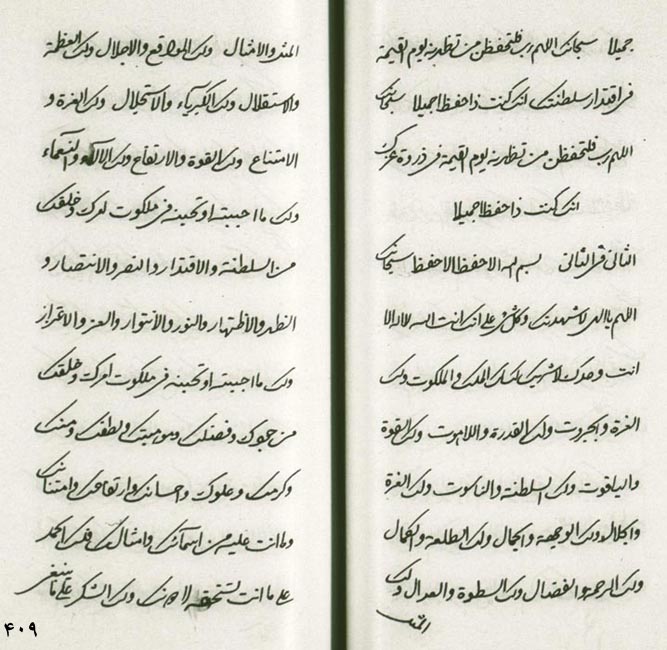 جميلا سبحانك اللهم رب فلتحفظن من تظهرنه يوم القيمة
في اقتدار سلطنتك انك كنت ذا حفظا جميلا سبحانك
اللهم رب فلتحفظن من تظهرنه يوم القيمة في ذروة عزك
انك كنت ذا حفظا جميلا
الثاني في الثاني بسم الله الاحفظ الاحفظ سبحانك
اللهم يا الهي لاشهدنك وكل شيء على انك انت الله لا اله الا
انت وحدك لا شريك لك لك الملك والملكوت ولك
العزة والجبروت ولك القدرة واللاهوت ولك القوة
والياقوت ولك السلطنة والناسوت ولك العزة
والجلال ولك الوجهة والجمال ولك الطلعة والكمال
ولك الرحمة والفضال ولك السطوة والعدال ولك
المثل
المثل والامثال ولك المواقع والاجلال ولك العظمة
والاستقلال ولك الكبرياء والاستجلال ولك العزة و
الامتناع ولك القوة والارتفاع ولك الالاء والنعماء
ولك ما احببته او تحبنه في ملكوت امرك وخلقك
من السلطنة والاقتدار والنصر والانتصار و
الظهر والاظتهار والنور والانتوار والعز والاعتزاز
ولك ما احببته او تحبنه في ملكوت امرك وخلقك
من جودك وفضلك وموهبتك ولطفك ومنك
وكرمك وعلوك واحسانك وارتفاعك وامتناعك
وما انت عليه من اسمائك وامثالك فلك الحمد
على ما انت تستحقه لا دونك ولك الشكر على ما ينبغي
۴۰۹